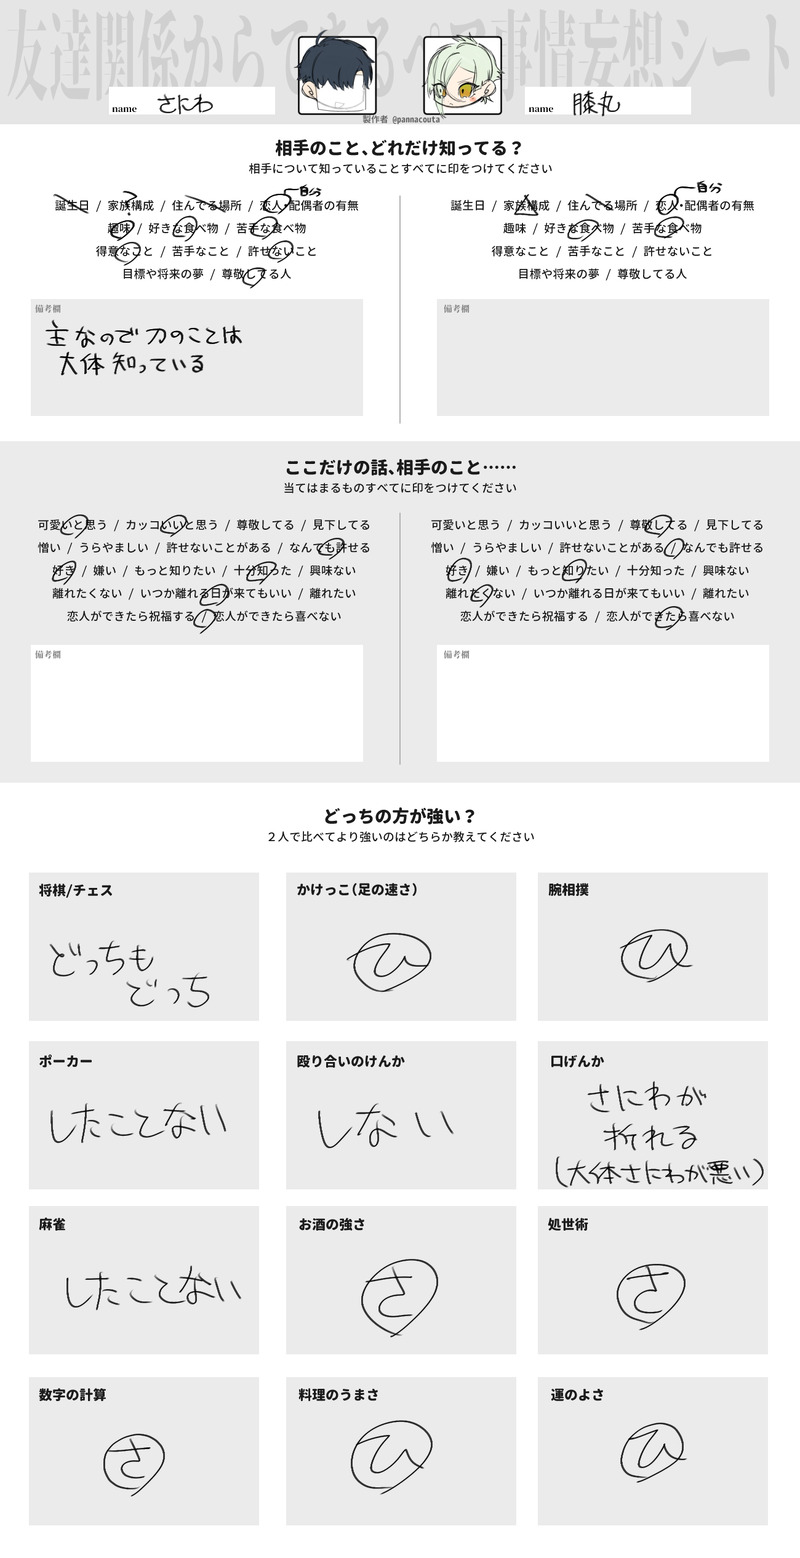 友達関係からできるペア事情妄想シート
name さにわ
name 膝丸
製作者 @pannacouta
相手のこと、どれだけ知ってる？
相手について知っていることすべてに印をつけてください
?
自分
誕生日 / 家族構成 / 住んでる場所 / 恋人・配偶者の有無
趣味 / 好きな食べ物 / 苦手な食べ物
得意なこと / 苦手なこと / 許せないこと
目標や将来の夢 / 尊敬してる人
備考欄
主なので刀のことは
大体知っている
自分
誕生日 / 家族構成 / 住んでる場所 / 恋人・配偶者の有無
趣味 / 好きな食べ物 / 苦手な食べ物
得意なこと / 苦手なこと / 許せないこと
目標や将来の夢 / 尊敬してる人
備考欄
ここだけの話、相手のこと……
当てはまるものすべてに印をつけてください
可愛いと思う / カッコいいと思う / 尊敬してる / 見下してる
憎い / うらやましい / 許せないことがある / なんでも許せる
好き / 嫌い / もっと知りたい / 十分知った / 興味ない
離れたくない / いつか離れる日が来てもいい / 離れたい
恋人ができたら祝福する / 恋人ができたら喜べない
備考欄
可愛いと思う / カッコいいと思う / 尊敬してる / 見下してる
憎い / うらやましい / 許せないことがある / なんでも許せる
好き / 嫌い / もっと知りたい / 十分知った / 興味ない
離れたくない / いつか離れる日が来てもいい / 離れたい
恋人ができたら祝福する / 恋人ができたら喜べない
備考欄
どっちの方が強い？
２人で比べてより強いのはどちらか教えてください
将棋/チェス
どっちも
どっち
かけっこ（足の速さ）
ひ
腕相撲
ひ
ポーカー
したことない
殴り合いのけんか
しない
口げんか
さにわが
折れる
(大体さにわが悪い)
麻雀
したことない
お酒の強さ
さ
処世術
さ
数字の計算
さ
料理のうまさ
ひ
運のよさ
ひ